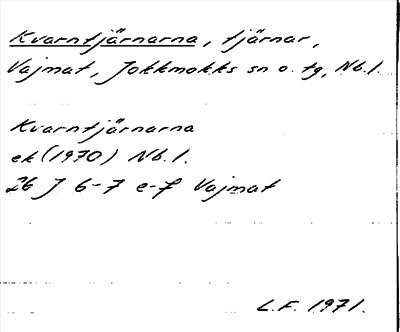 Kvarntjärnarna, tjärnar,
Vajmat, Jokkmokks sn o. tg, Nb.l.
Kvarntjärnarna
ek (1970) Nb.l.
26 J 6-7 e-f Vajmat
L.F. 1971.